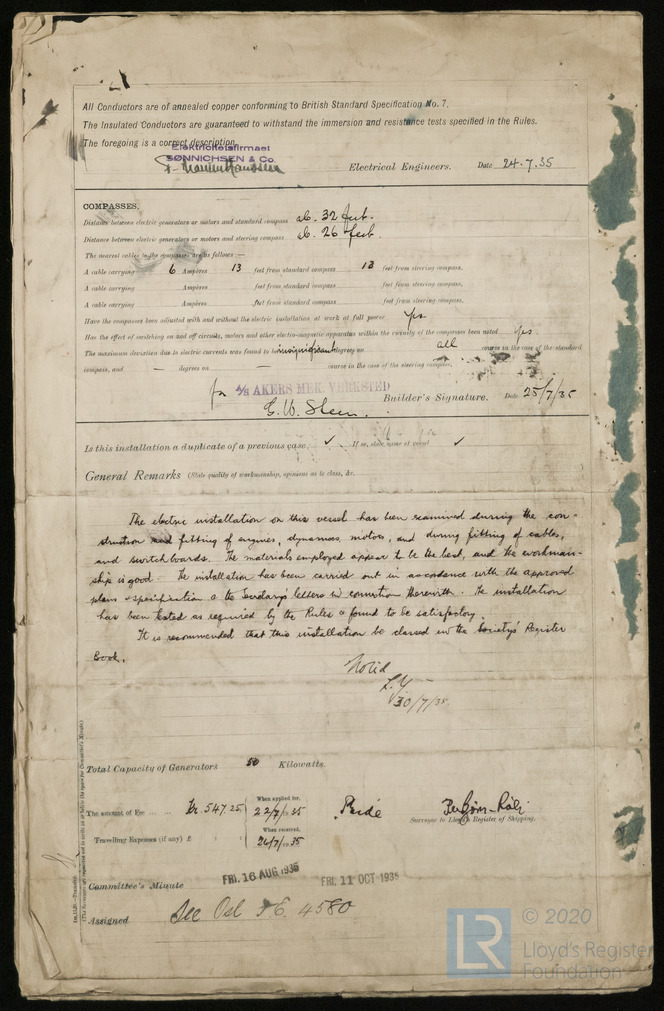 All Conductors are of annealed copper conforming to British Standard Specification No. 7.
The Insulated Conductors are guaranteed to withstand the immersion and resistance tests specified in the Rules.
The foregoing is a correct description.
Elektricitetsfirmaet
SØNNICHSEN & Co.
Electrical Engineers. Date 24.7.35
COMPASSES.
Distance between electric generators or motors and standard compass ab. 32 feet.
Distance between electric generators or motors and steering compass ab. 26 feet.
The nearest cables to the compasses are as follows:—
A cable carrying 6 Ampères 13 feet from standard compass 13 feet from steering compass.
A cable carrying Ampères feet from standard compass feet from steering compass.
A cable carrying Ampères feet from standard compass feet from steering compass.
Have the compasses been adjusted with and without the electric installation at work at full power Yes
Has the effect of switching on and off circuits, motors and other electro-magnetic apparatus within the vicinity of the compasses been noted Yes
The maximum deviation due to electric currents was found to be insignificant degrees on all course in the case of the standard
compass, and — degrees on — course in the case of the steering compass.
for A/S AKERS MEK. VERKSTED
Builder's Signature. Date 25/7/35
Is this installation a duplicate of a previous case ✓ If so, state name of vessel ✓
General Remarks (State quality of workmanship, opinions as to class, &c.
The electric installation on this vessel has been examined during the con-
struction and fitting of engines, dynamos, motors, and during fitting of cables,
and switchboards. The materials employed appear to be the best, and the workman-
ship is good. The installation has been carried out in accordance with the approved
plans & specification & the Secretary's letters in connection therewith. The installation
has been tested as required by the Rules & found to be satisfactory.
It is recommended that this installation be classed in the Society's Register
Book.
Noted
30/7/35.
Total Capacity of Generators 50 Kilowatts.
The amount of Fee ... Kr. 547.25 When applied for, 22/7/1935
Travelling Expenses (if any) £ When received, 24/7/1935
Surveyor to Lloyd's Register of Shipping.
Committee's Minute FRI. 16 AUG 1935 FRI. 11 OCT 1935
Assigned See Osl F.E. 4580
LR © 2020
Lloyd's Register
Foundation